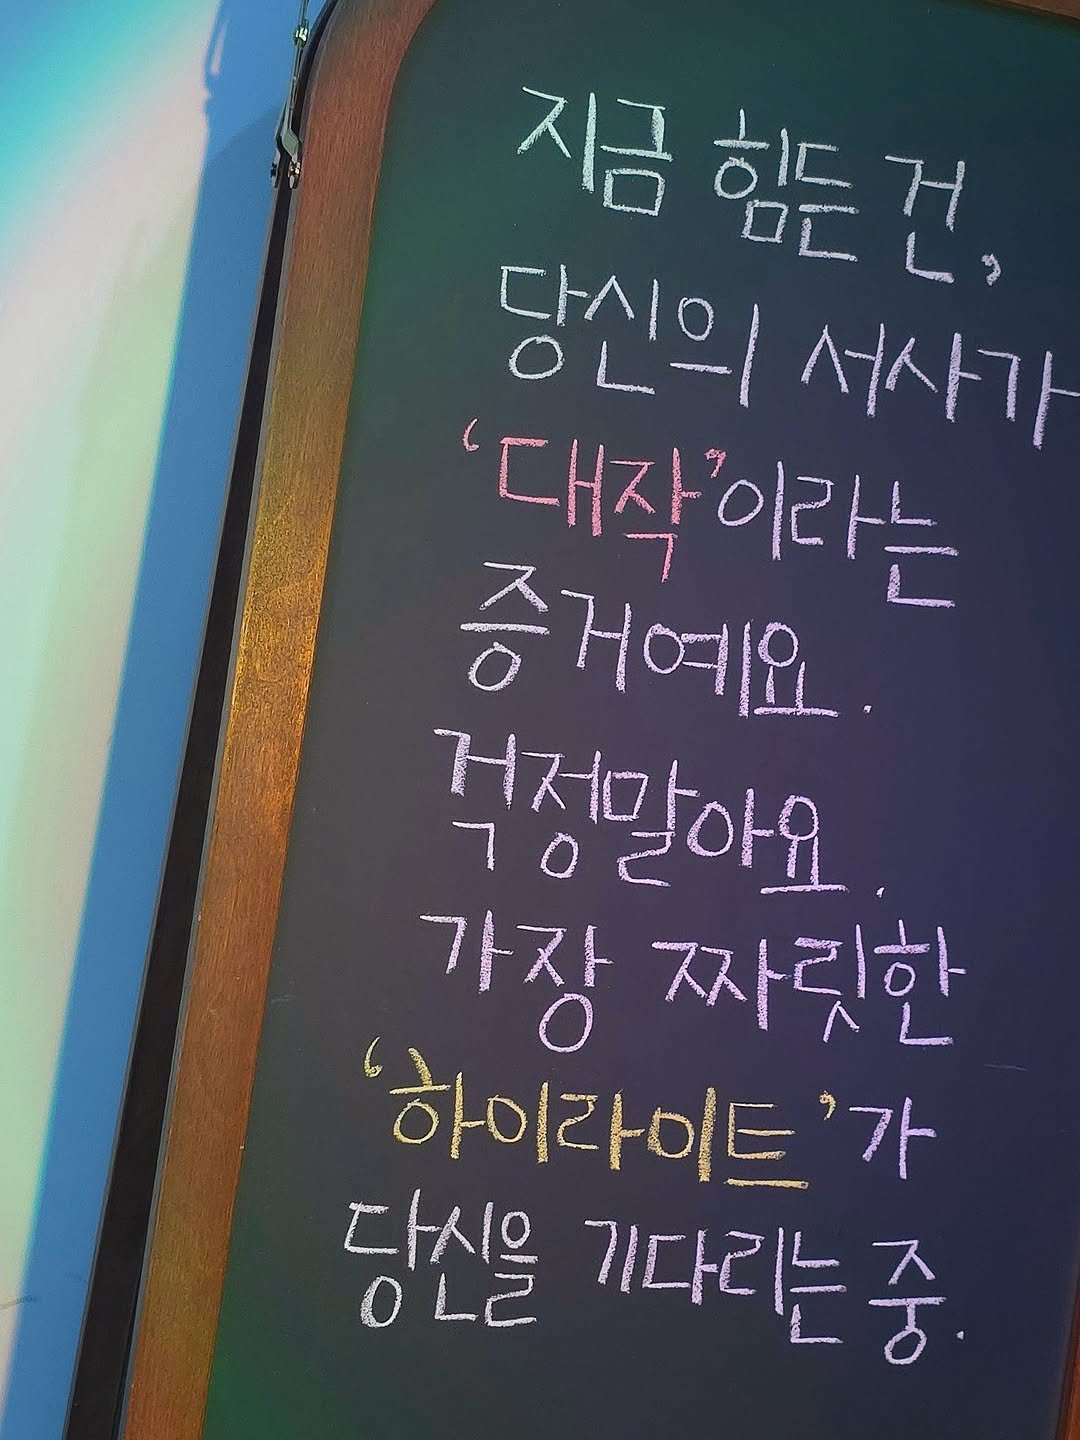 지금 힘든 건,
당신의 서사가
‘대작’이라는
증거예요.
걱정말아요.
가장 짜릿한
‘하이라이트’가
당신을 기다리는 중.